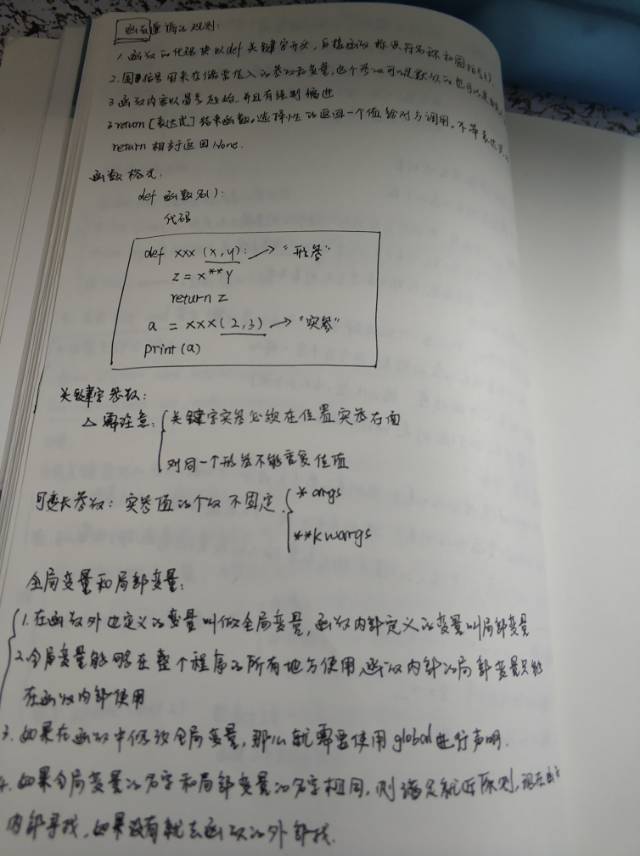 函数遵循的规则:
1.函数的代码块以def关键字开头,后接函数标识符名称和圆括号()
2.圆括号用来存储要传入的参数和变量,这个参数可以是默认的也可以是
3.函数内容以冒号起始,并且有强制缩进
3.return[表达式]结束函数,选择性的返回一个值给对方调用。不带表达式
return相当于返回None.
函数格式:
def 函数名():
代码
def xxx(x,y): → "形参"
z=x**y
return z
a = xxx(2,3) → "实参"
print(a)
关键字参数:
△ 需注意: 关键字实参必须在位置实参右面
对同一个形参不能重复传值
可变长参数: 实参值的个数不固定. *args
**kwargs
全局变量和局部变量:
1.在函数外边定义的变量叫做全局变量,函数内部定义的变量叫局部变量
2.全局变量能够在整个程序的所有地方使用,函数内部的局部变量只能
在函数内部使用
3.如果在函数中修改全局变量,那么就需要使用global进行声明.
4.如果全局变量的名字和局部变量的名字相同,则满足就近原则,现在函数
内部寻找,如果没有就去函数的外部找.